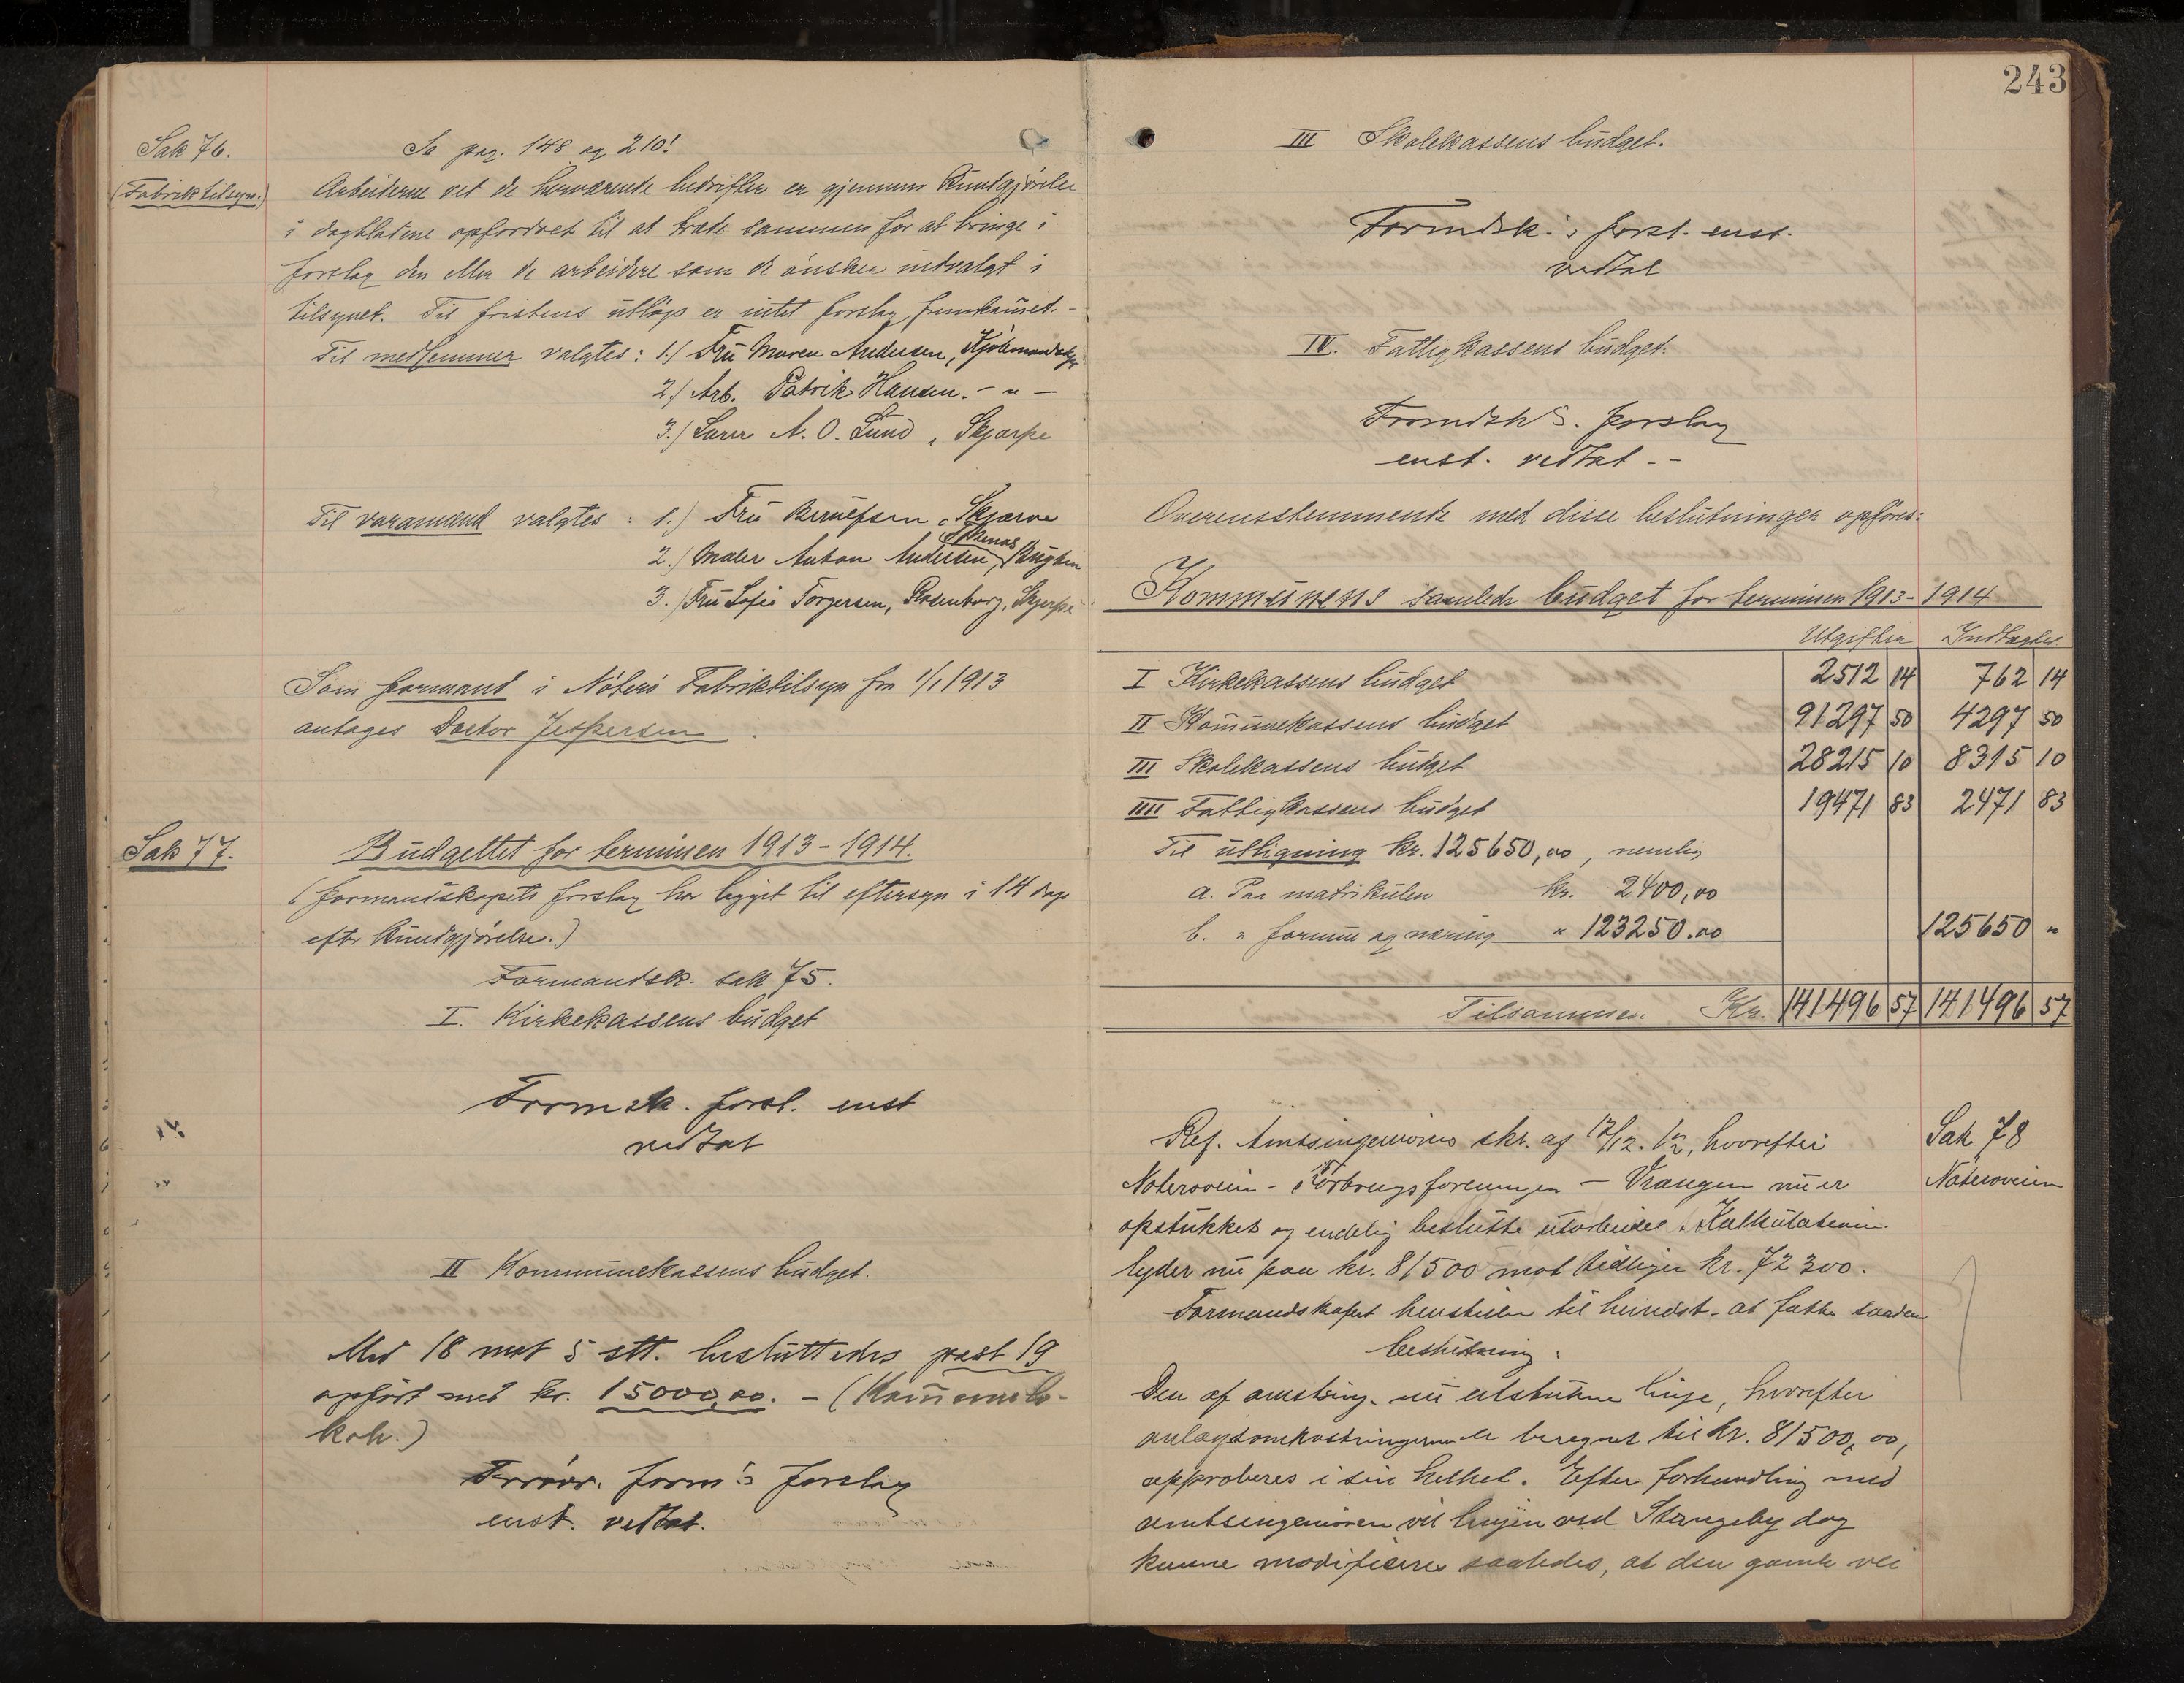 Sak 76.
(Fabriktilsyn.)
Se pag. 148 og 210!
Arbeiderne ved de herværende bedrifter er gjennem kundgjörelse
i dagbladene opfordret til at træde sammen for at bringe i
forslag den eller de arbeidere som de önsker indvalgt i
tilsynet. Til fristens utlöp er intet forslag fremkommet. -
Til medlemmer valgtes: 1.) Fru Maren Andersen,
2.) Arb. Patrik Hansen. - " -
3.) Lærer A. O. Lund, Skjærpe
Til varamænd valgtes: 1.) Fru
2.) Maler Anton Andersen,
3.) Fru Sofie Torgersen, Rosenborg, Skjerpe
Som formand i Nöterö Fabriktilsyn fra 1/1 1913
antages Doctor Jespersen.
Sak 77.
Budgettet for terminen 1913-1914.
(formandskapets forslag har ligget til eftersyn i 14 dage
efter kundgjörelse.)
Formandsk. sak 75.
I. Kirkekassens budget
Formsk. forsl. enst
vedtat
II Kommunekassens budget.
Med 18 mot 5 stt. besluttedes post 19
opfört med kr. 15000,00. - (
kok.)
form's forslag
enst. vedtat.
243
III Skolekassens budget.
Formdsk.'s forsl. enst.
vedtat
IV. Fattigkassens budget.
Formdsk's. forslag
enst. vedtat --
Overensstemmende med disse beslutninger opföres:
Kommunens samlede budget for terminen 1913-1914
Utgifter Indtægter
I Kirkekassens budget 2512 14 762 14
II Kommunekassens budget 91297 50 4297 50
III Skolekassens budget 28215 10 8315 10
IIII Fattigkassens budget 19471 83 2471 83
Til utligning kr. 125650,00, nemlig
a. Paa matrikulen kr. 2400,00
b. " formue og næring " 123250.00 125650 "
Tilsammen Kr. 141496 57 141496 57
Sak 78
Nöteröveien
Ref. Amtsingeniörens skr. af 12/12. 12, hvorefter
Nöteröveien - Forbrugsforeningen - Vrangen nu er
opstukket og endelig utarbeidet. Kalkulationen
lyder nu paa kr. 81500 mot tidligere kr. 72300.
Formandskapet henstiller til herredst. at fatte saadan
beslutning:
Den af amtsing. nu utstukne linje, hvorefter
anlægsomkostningerne er beregnet til kr. 81500,00,
approberes i sin helhet. Efter forhandling med
amtsingeniören vil linjen ved Skangeby dog
kunne modificeres saaledes, at den gamle vei